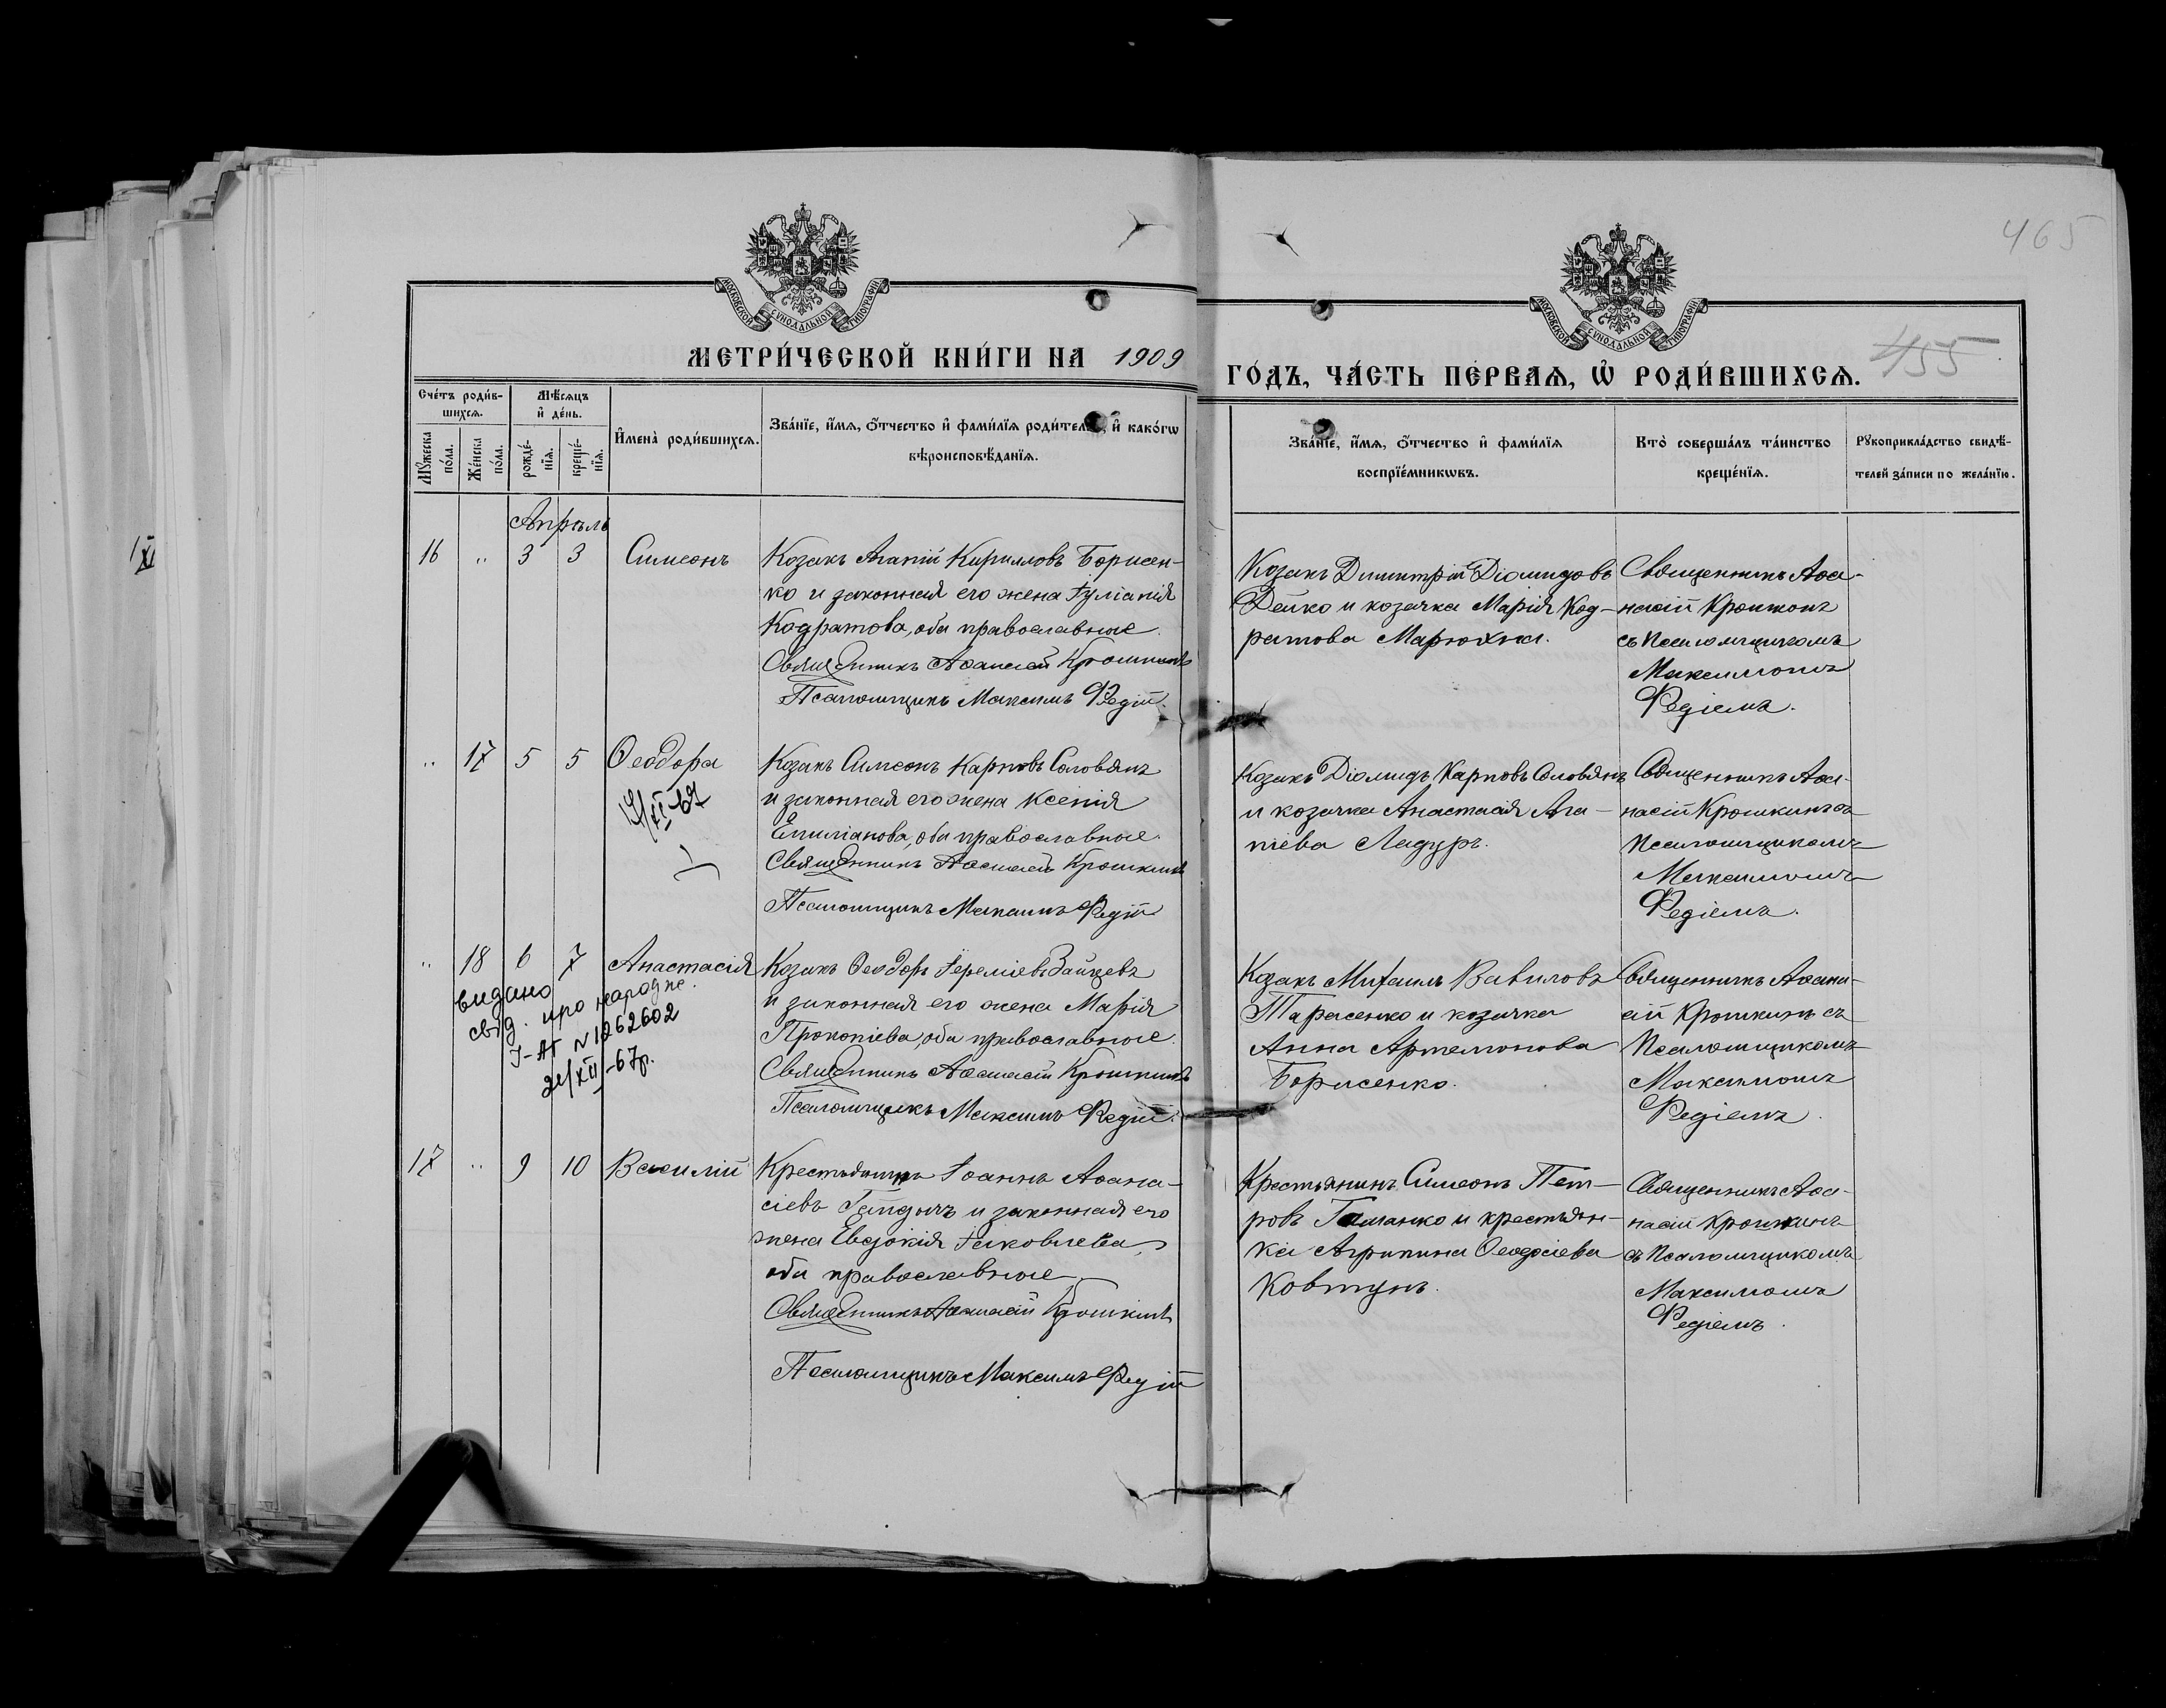 465
МОСКОВСКОЙ СѴНОДАЛЬНОЙ ТИПОГРАФІИ
МОСКОВСКОЙ СѴНОДАЛЬНОЙ ТИПОГРАФІИ
МЕТРИ́ЧЕСКОЙ КНИ́ГИ НА 1909
ГО́ДЪ, ЧА́СТЬ ПЕ́РВАѦ, Ѡ РОДИ́ВШИХСѦ.
455
Сче́тъ роди́в-
шихсѧ.
Мꙋжеска по́ла.
Же́нска по́ла.
Мѣ́сѧцъ
и҆ де́нь.
рожде́-
нїѧ.
креще́-
нїѧ.
И҆мена̀ роди́вшихсѧ.
Зва́нїе, и҆́мѧ, ѻ҆́тчество и҆ фами́лїѧ роди́телей, и҆ како́гѡ
вѣроисповѣ́данїѧ.
Зва́нїе, и҆́мѧ, ѻ҆́тчество и҆ фами́лїѧ
воспрїе́мникѡвъ.
Кто̀ соверша́лъ та́инство
креще́нїѧ.
Рꙋкоприкла́дство свидѣ́-
телей за́писи по жела́нїю.
Апрѣль
16 " 3 3 Симеонъ
Козакъ Агапій Кирилловъ Борисен-
ко и законная его жена Іуліанія
Кодратова, оба православные.
Священникъ Аѳанасій Крошкинъ
Псаломщикъ Максимъ Редій.
Козакъ Димитрій Діомидовъ
Дейко и козачка Марія Код-
ратова Марюхна.
Священникъ Аѳа-
насій Крошкинъ
съ псаломщикомъ
Максимомъ
Редіемъ.
" 17 5 5 Ѳеодора
Козакъ Симеонъ Карповъ Соловьянъ
и законная его жена Ксенія
Емиліанова, оба православные.
Священникъ Аѳанасій Крошкинъ
Псаломщикъ Максимъ Редій
Козакъ Діомидъ Карповъ Соловьянъ
и козачка Анастасія Ага-
піева Ладуръ.
Священникъ Аѳа-
насій Крошкинъ съ
псаломщикомъ
Максимомъ
Редіемъ.
" 18 6 7 Анастасія
видано
свід. про народже.
І-АГ №1262602
21/XII-67р.
Козакъ Ѳеодоръ Іереміевъ Зайцевъ
и законная его жена Марія
Прокопіева, оба православные.
Священникъ Аѳанасій Крошкинъ
Псаломщикъ Максимъ Редій.
Козакъ Михаилъ Вавиловъ
Тарасенко и козачка
Анна Артемонова
Борисенко.
Священникъ Аѳана-
сій Крошкинъ съ
псаломщикомъ
Максимомъ
Редіемъ.
17 " 9 10 Василій
Крестьянинъ Іоаннъ Аѳана-
сіевъ и законная его
жена Евдокія Іаковлева,
оба православные
Священникъ Аѳанасій Крошкинъ
Псаломщикъ Максимъ Редій
Крестьянинъ Симеонъ Пет-
ровъ Гаманко и крестьян-
ка Агрипина Ѳеодосіева
Ковтунъ.
Священникъ Аѳа-
насій Крошкинъ
съ псаломщикомъ
Максимомъ
Редіемъ.